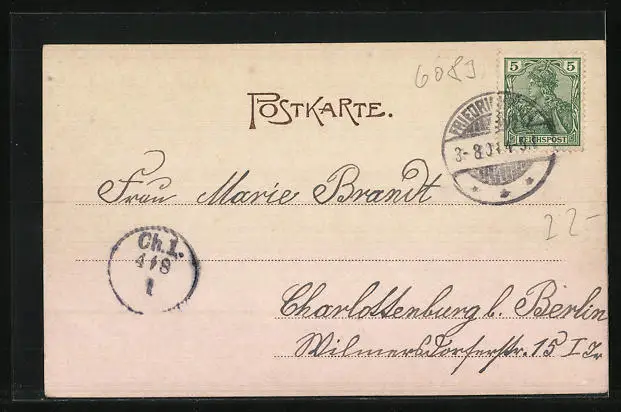 6083
POSTKARTE.
5 5
REICHSPOST
FRIEDRI
3-8 01 4-5
Frau Marie Brandt
22-
Ch.1.
4/8
1
Charlottenburg b. Berlin
Wilmersdorferstr. 15 I Tr